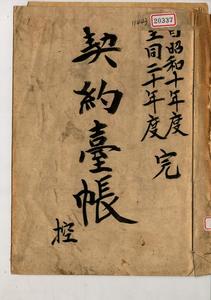 20337
自昭和十年度
至同二十年度
完
契約臺帳
控